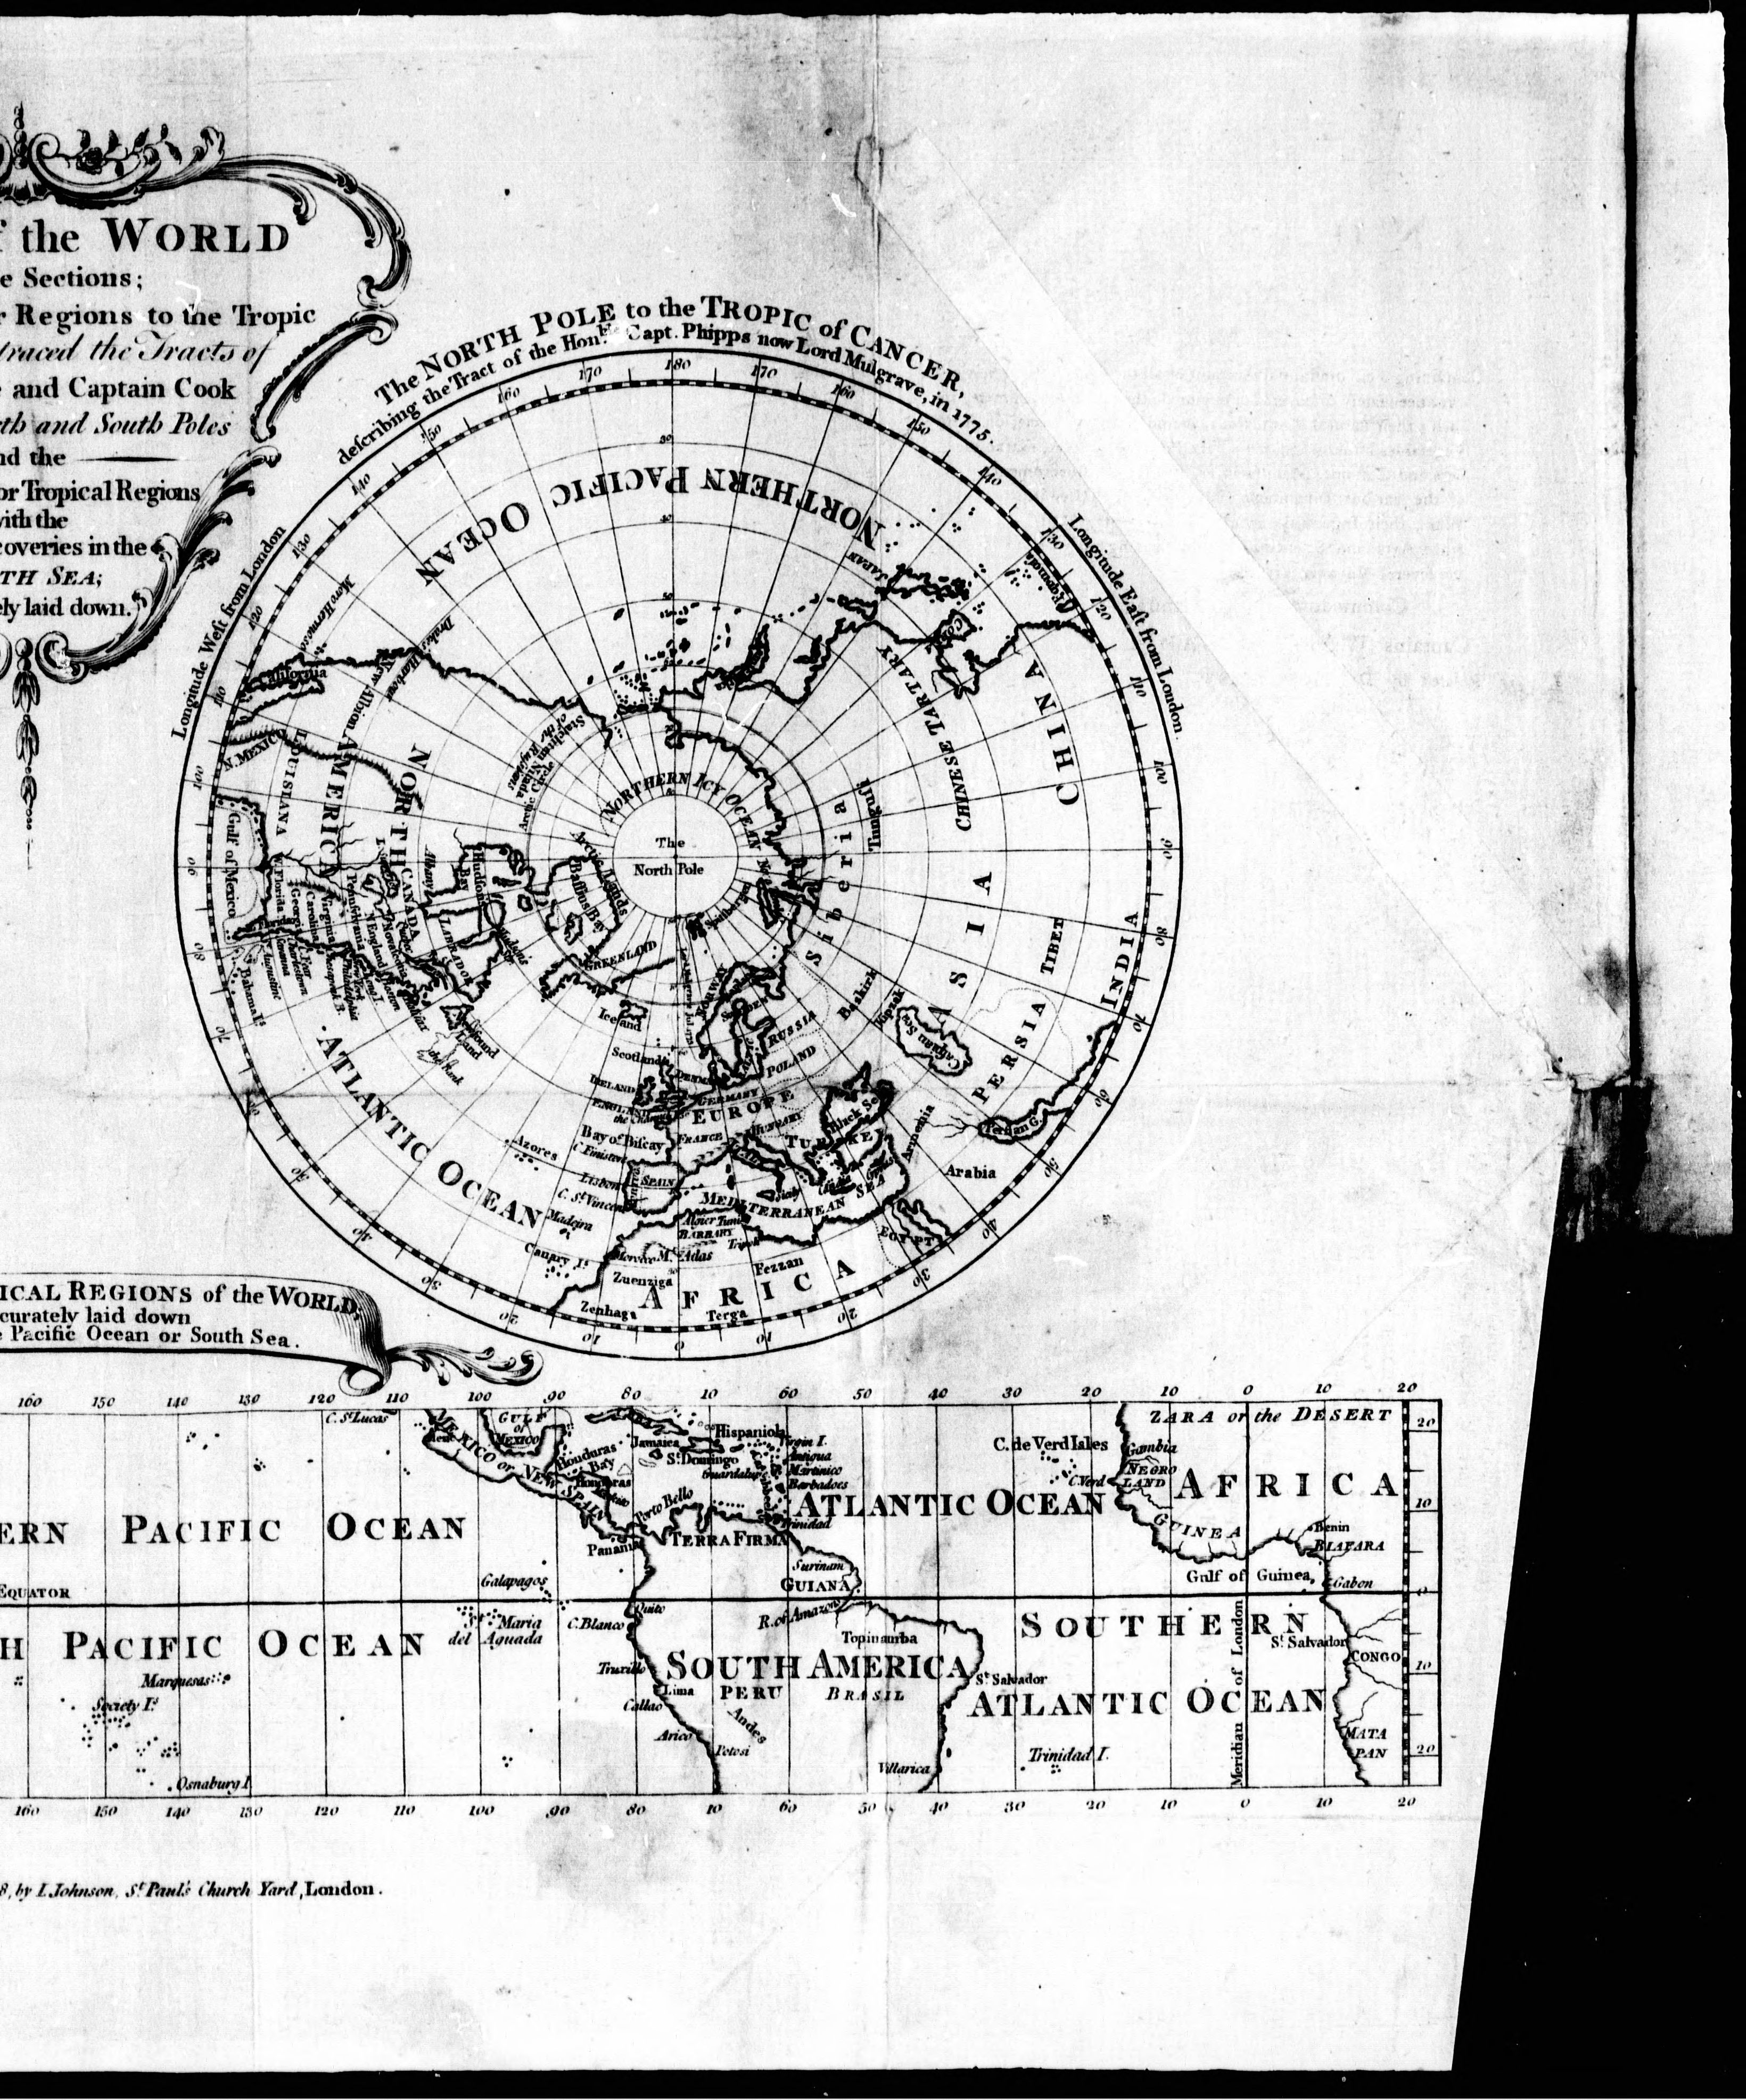 the WORLD
Sections;
Regions to the Tropic
traced the Tracts of
and Captain Cook
and South Poles
the
or Tropical Regions
with the
coveries in the
TH SEA;
ely laid down.
The NORTH POLE to the TROPIC of CANCER,
describing the Tract of the Hon.ble Capt. Phipps now Lord Mulgrave, in 1775.
Longitude West from London
Longitude East from London.
110
120
130
140
150
160
170
180
170
160
150
140
130
120
110
100
90
80
70
60
50
40
30
20
10
0
10
20
30
40
50
70
80
90
100
NORTHERN PACIFIC OCEAN
JAPAN
Formosa
Cor
CHINA
CHINESE TARTARY
Tunguſi
Siberia
ASIA
TIBET
INDIA
PERSIA
Baskirk
Kipzak
Caspian Sea
Persian G.
Arabia
Armenia
Moro Hermoso
Drakes Harbour
California
New Albion
N. MEXICO
LOUISIANA
NORTH
AMERICA
Gulf of Mexico
W. Florida
Georgia
Carolina
Virginia
Pensilvania
N England
CANADA
Albany
Hudsons Bay
LABRADOR
Baffins Bay
Arctic Lands
Arctic Circle
NORTHERN ICY OCEAN
The
North Pole
Spitsbergen
GREENLAND
Iceland
Bahama I.s
Newfound Land
ATLANTIC OCEAN
NORWAY
SWEDEN
RUSSIA
POLAND
Scotland
IRELAND
ENGLAND
GERMANY
EUROPE
HUNGARY
FRANCE
Black Sea
TURKEY
Bay of Biſcay
C Finistere
Azores
Lisbon
SPAIN
C. St. Vincent
Madeira
Sicily
MEDITERRANEAN SEA
Algier Tunis
BARBARY
Tripoli
EGYPT
Canary I.s
Morocco
Mt. Atlas
Fezzan
Zuenziga
Zenhaga
AFRICA
Terga
ICAL REGIONS of the WORLD,
curately laid down
Pacific Ocean or South Sea.
160 150 140 130 120 110 100 90 80 70 60 50 40 30 20 10 0 10 20
C. St. Lucas
MEXICO or NEW SPAIN
GULF of MEXICO
Honduras Bay
Honduras
Jamaica
Hispaniola
St. Domingo
Guardalupe
Virgin I.
Antigua
Martinico
Barbadoes
Trinidad
Porto Bello
Panama
TERRA FIRMA
Surinam
GUIANA
ATLANTIC OCEAN
C. de Verd Isles
C. Verd
ZARA or the DESERT
Gambia
NEGRO LAND
AFRICA
GUINEA
Benin
BIAFARA
Gulf of Guinea
Gabon
20
10
0
10
20
ERN PACIFIC OCEAN
EQUATOR
Galapagos
H PACIFIC OCEAN
S. Maria
del Aguada
C. Blanco
Quito
R. of Amazons
Topinamba
Marquesas
Society I.s
Osnaburg I.
Truxillo
Lima
Callao
Arico
SOUTH AMERICA
PERU
BRASIL
Andes
Potosi
Villarica
St. Salvador
SOUTHERN
ATLANTIC OCEAN
Trinidad I.
Meridian of London
St. Salvador
CONGO
MATA PAN
160 150 140 130 120 110 100 90 80 70 60 50 40 30 20 10 0 10 20
8, by I. Johnson, St. Paul's Church Yard, London.